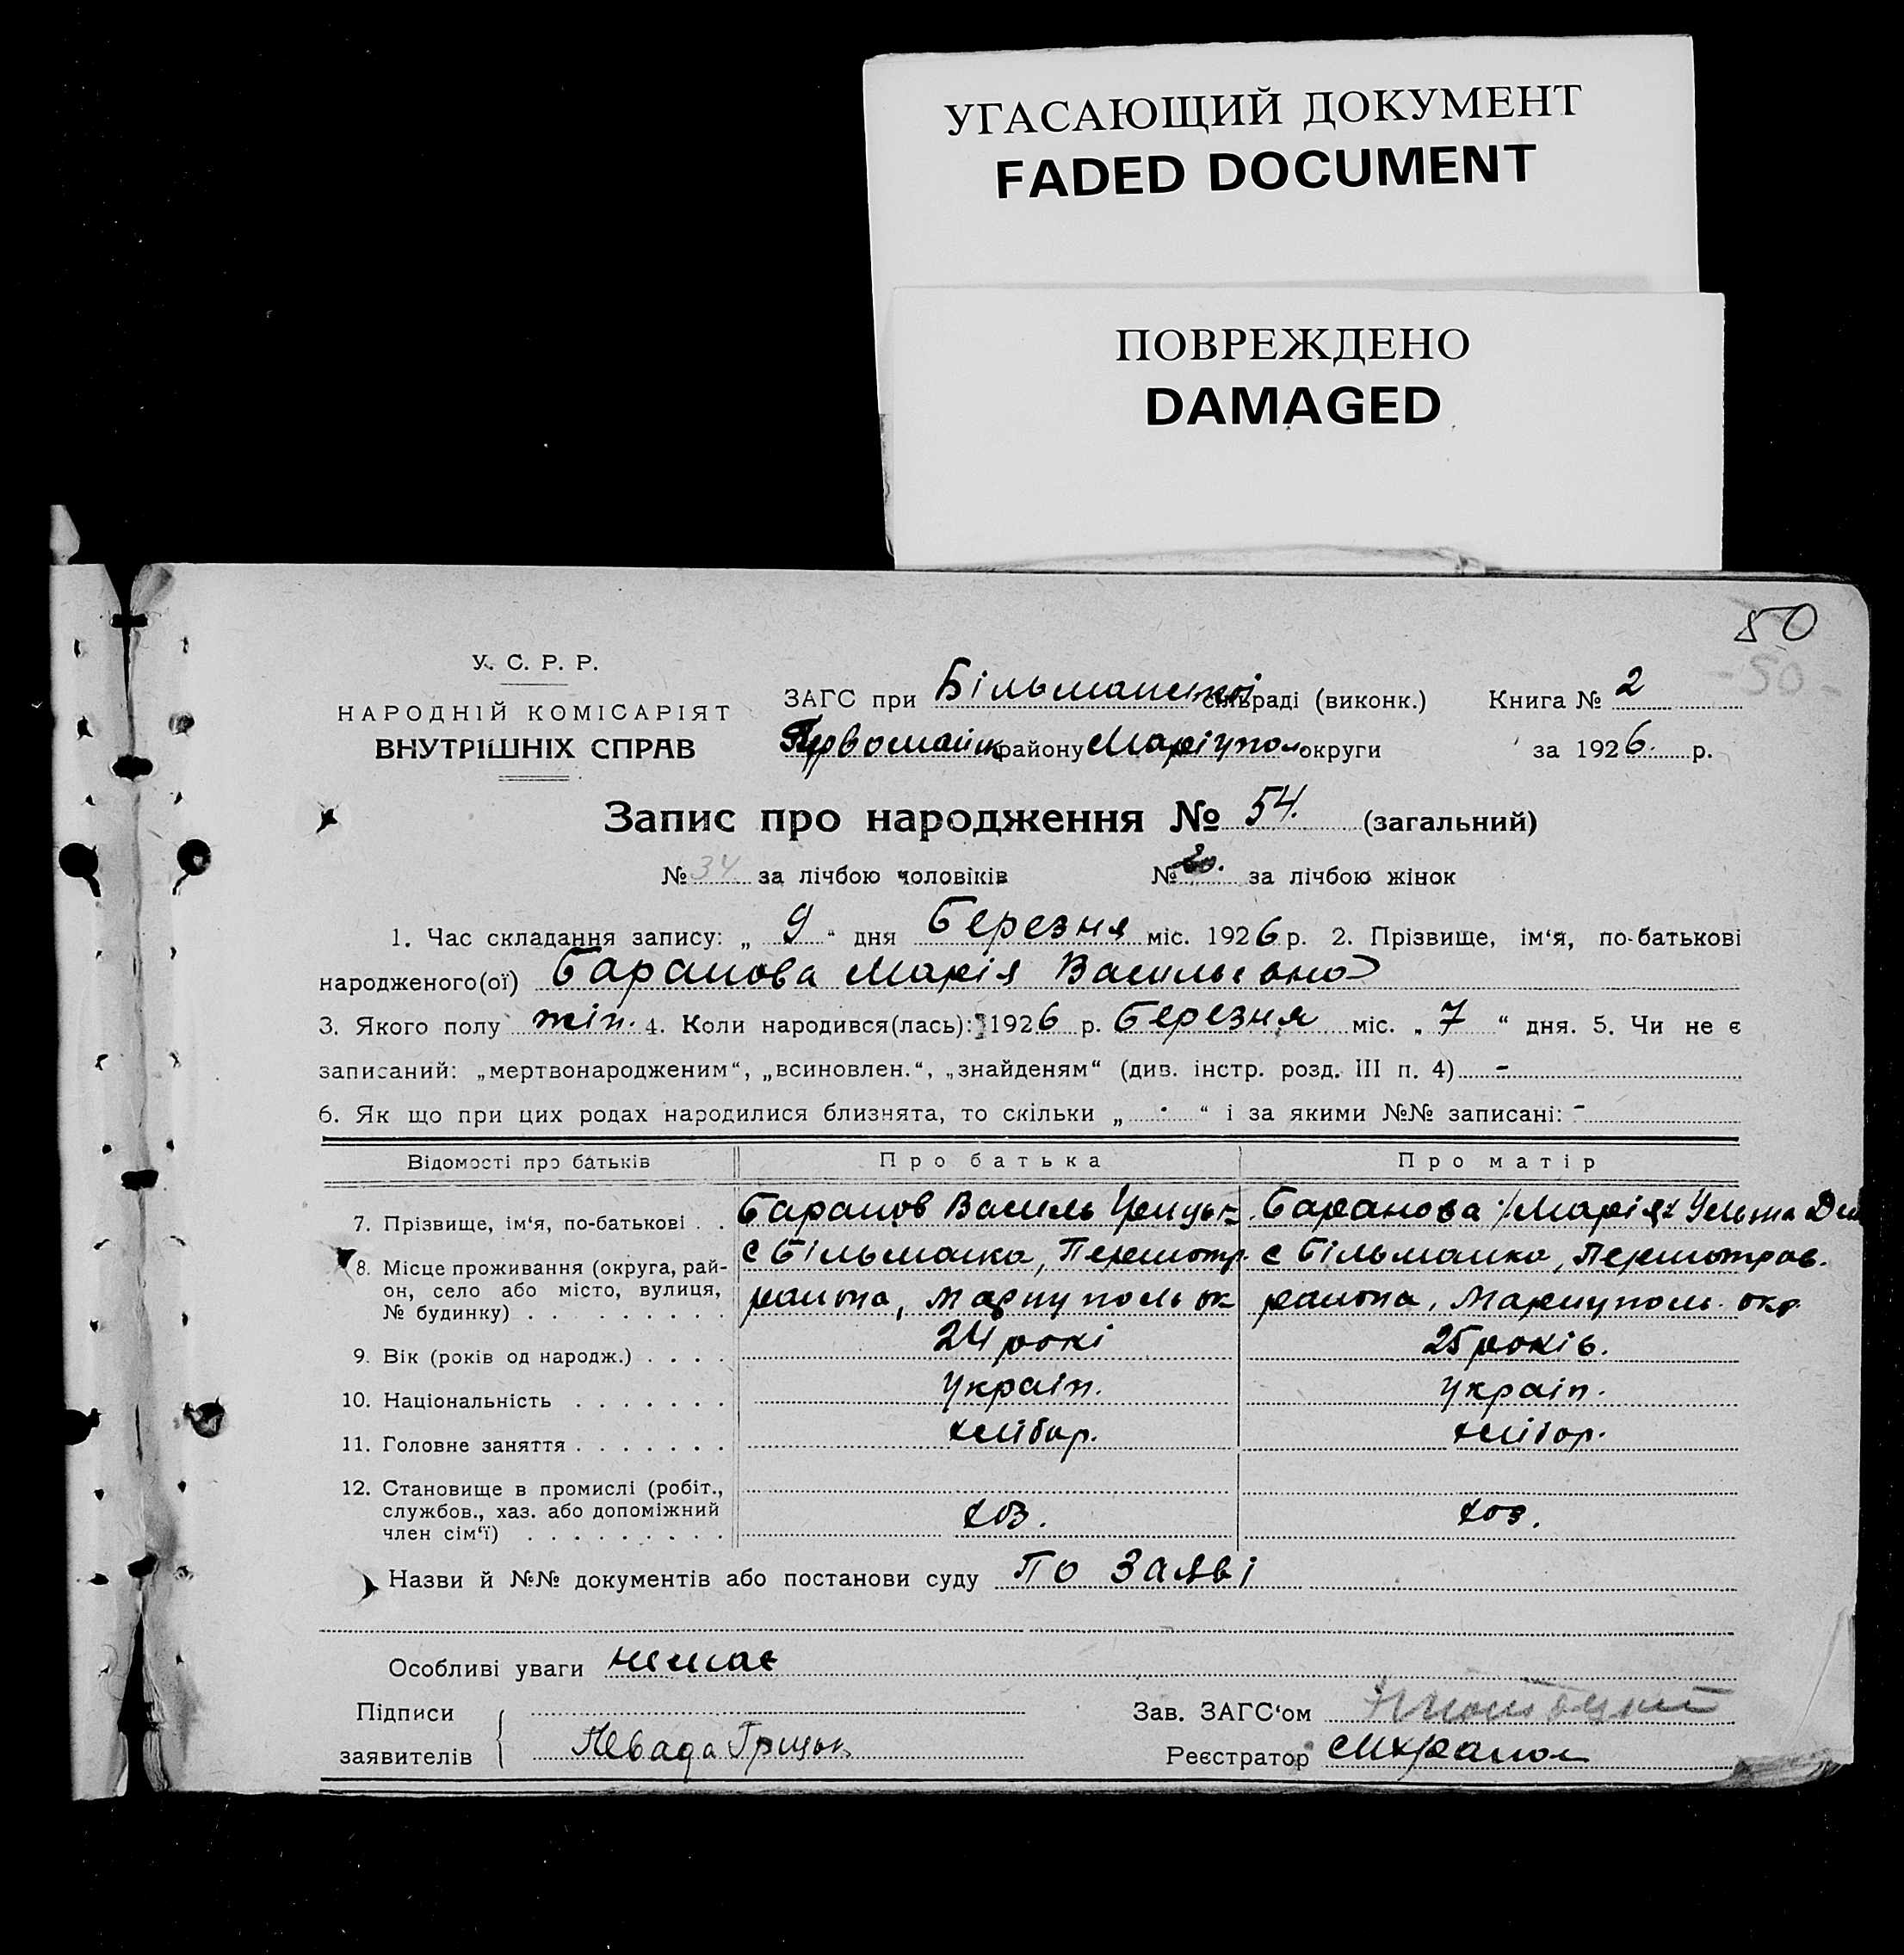 УГАСАЮЩИЙ ДОКУМЕНТ
FADED DOCUMENT
ПОВРЕЖДЕНО
DAMAGED
50
-50-
У. С. Р. Р.
НАРОДНІЙ КОМІСАРІЯТ
ВНУТРІШНІХ СПРАВ
ЗАГС при Більманській сільраді (виконк.) Книга № 2
Первомайск району Маріупол округи за 1926 р.
Запис про народження № 54. (загальний)
№ 34 за лічбою чоловіків № 20. за лічбою жінок
1. Час складання запису: „ 9 “ дня Березня міс. 1926 р. 2. Прізвище, ім‘я, по-батькові
народженого(ої) Баранова Марія Васильовна
3. Якого полу жін. 4. Коли народився(лась): 1926 р. Березня міс. „ 7 “ дня. 5. Чи не є
записаний: „мертвонародженим“, „всиновлен.“, „знайденям“ (див. інстр. розд. III п. 4) -
6. Як що при цих родах народилися близнята, то скільки „ · “ і за якими №№ записані: -
Відомості про батьків Про батька Про матір
7. Прізвище, ім‘я, по-батькові . . Баранов Василь Баранова
8. Місце проживання (округа, рай-
он, село або місто, вулиця,
№ будинку) . . . . . . . . .
с Більманка, с Більманка,
района, Мариуполь ок района, Мариуполь. окр.
9. Вік (років од народж.) . . . . 24 рокі 25 років.
10. Національність . . . . . . . Україн. Україн.
11. Головне заняття . . . . . . . хлібор. хлібор.
12. Становище в промислі (робіт.,
службов., хаз. або допоміжний
член сім‘ї) . . . . . . . . .
хоз. хоз.
Назви й №№ документів або постанови суду По заяві
Особливі уваги немає
Підписи Зав. ЗАГС‘ом
заявителів Левада Грицьк Реєстратор